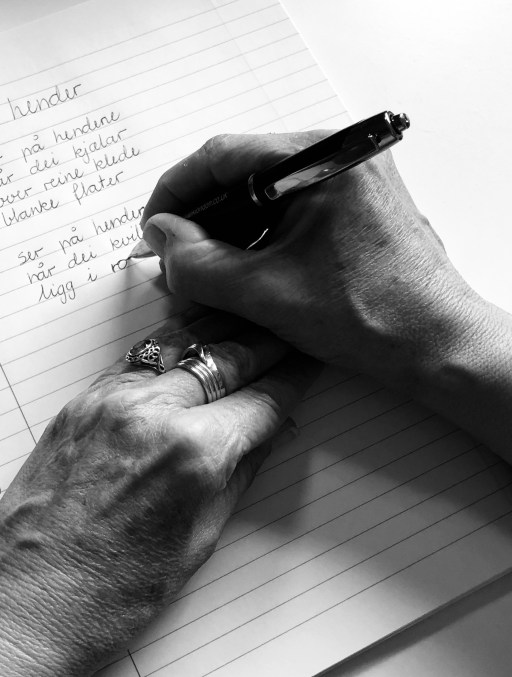 hender
på hendene
dei kjælar
over reine klede
blanke flater
Ser på henden
når dei kvil
ligg i ro